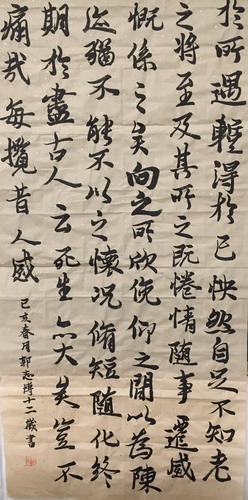 於所遇輕得於己快然自足不知老
之將至及其所之既惓情随事遷感
慨係之矣向之所欣俛仰之閒以為陳
迹猶不能不以之懷况脩短随化終
期於盡古人云死生亦大矣豈不
痛哉每攬昔人感
己亥春月郭志博十二歲書